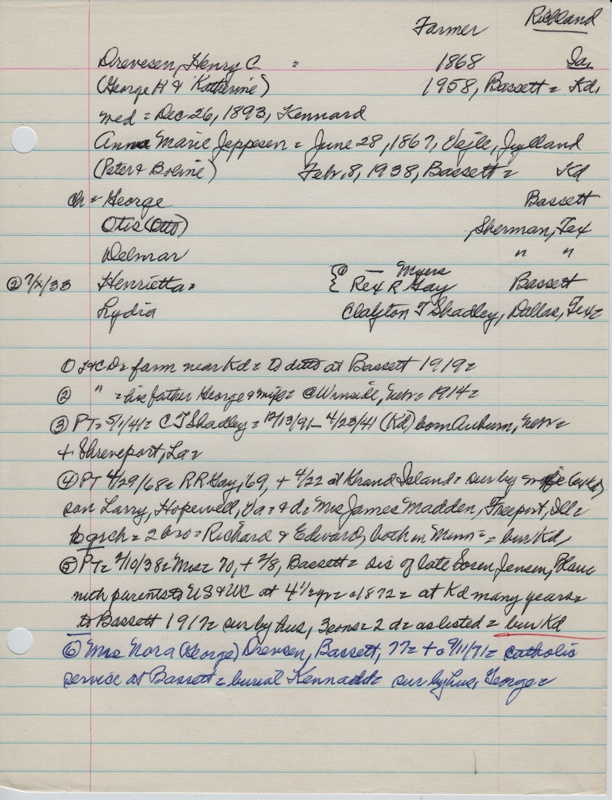 Farmer Richland
Drevesen, Henry C = 1868 Ia,
(George H & Katherine) 1958, Bassett = Kd,
med = Dec 26, 1893, Kennard
Anna Marie Jeppesen = June 28, 1867, Vejle, Jylland
(Peter & Boline) Febr, 8, 1938, Bassett = Kd
ch = George Bassett
Otis (Otto) Sherman, Tex
Delmar " "
② 7/2/33 Henrietta = { ① — Myers ② Rex R Gay Bassett
Lydia Clayton T Shadley, Dallas, Tex =
① farm near Kd = to ditto at Bassett 1919 =
② " = his father George & wife = Winside, Nebr = 1914 =
③ PT = 5/1/41 = C T Shadley = 12/13/91 – 4/23/41 (Kd) born Auburn, Nebr =
+ Shreveport, La =
④ PT 4/29/68 = R R Gay, 69, + 4/22 at Grand Island = sur by wife
son Larry, Hopewell, Va = & d = Mrs James Madden, Freeport, Ill =
grch = 2 bro = Richard & Edward, both in Minn = = bur Kd,
⑤ PT = 2/10/38 = Mrs = 70, + 2/8, Bassett = sis of late Soren Jensen, Blair
with parents to US & WC at 4½ yr = 1872 = at Kd many years =
to Bassett 1917 = sur by hus, 3 sons = 2 d = as listed = bur Kd
⑥ Mrs Nora (George) Drevsen, Bassett, 77 = + 9/11/71 = catholic
service at Bassett = burial Kennard = sur by hus, George =